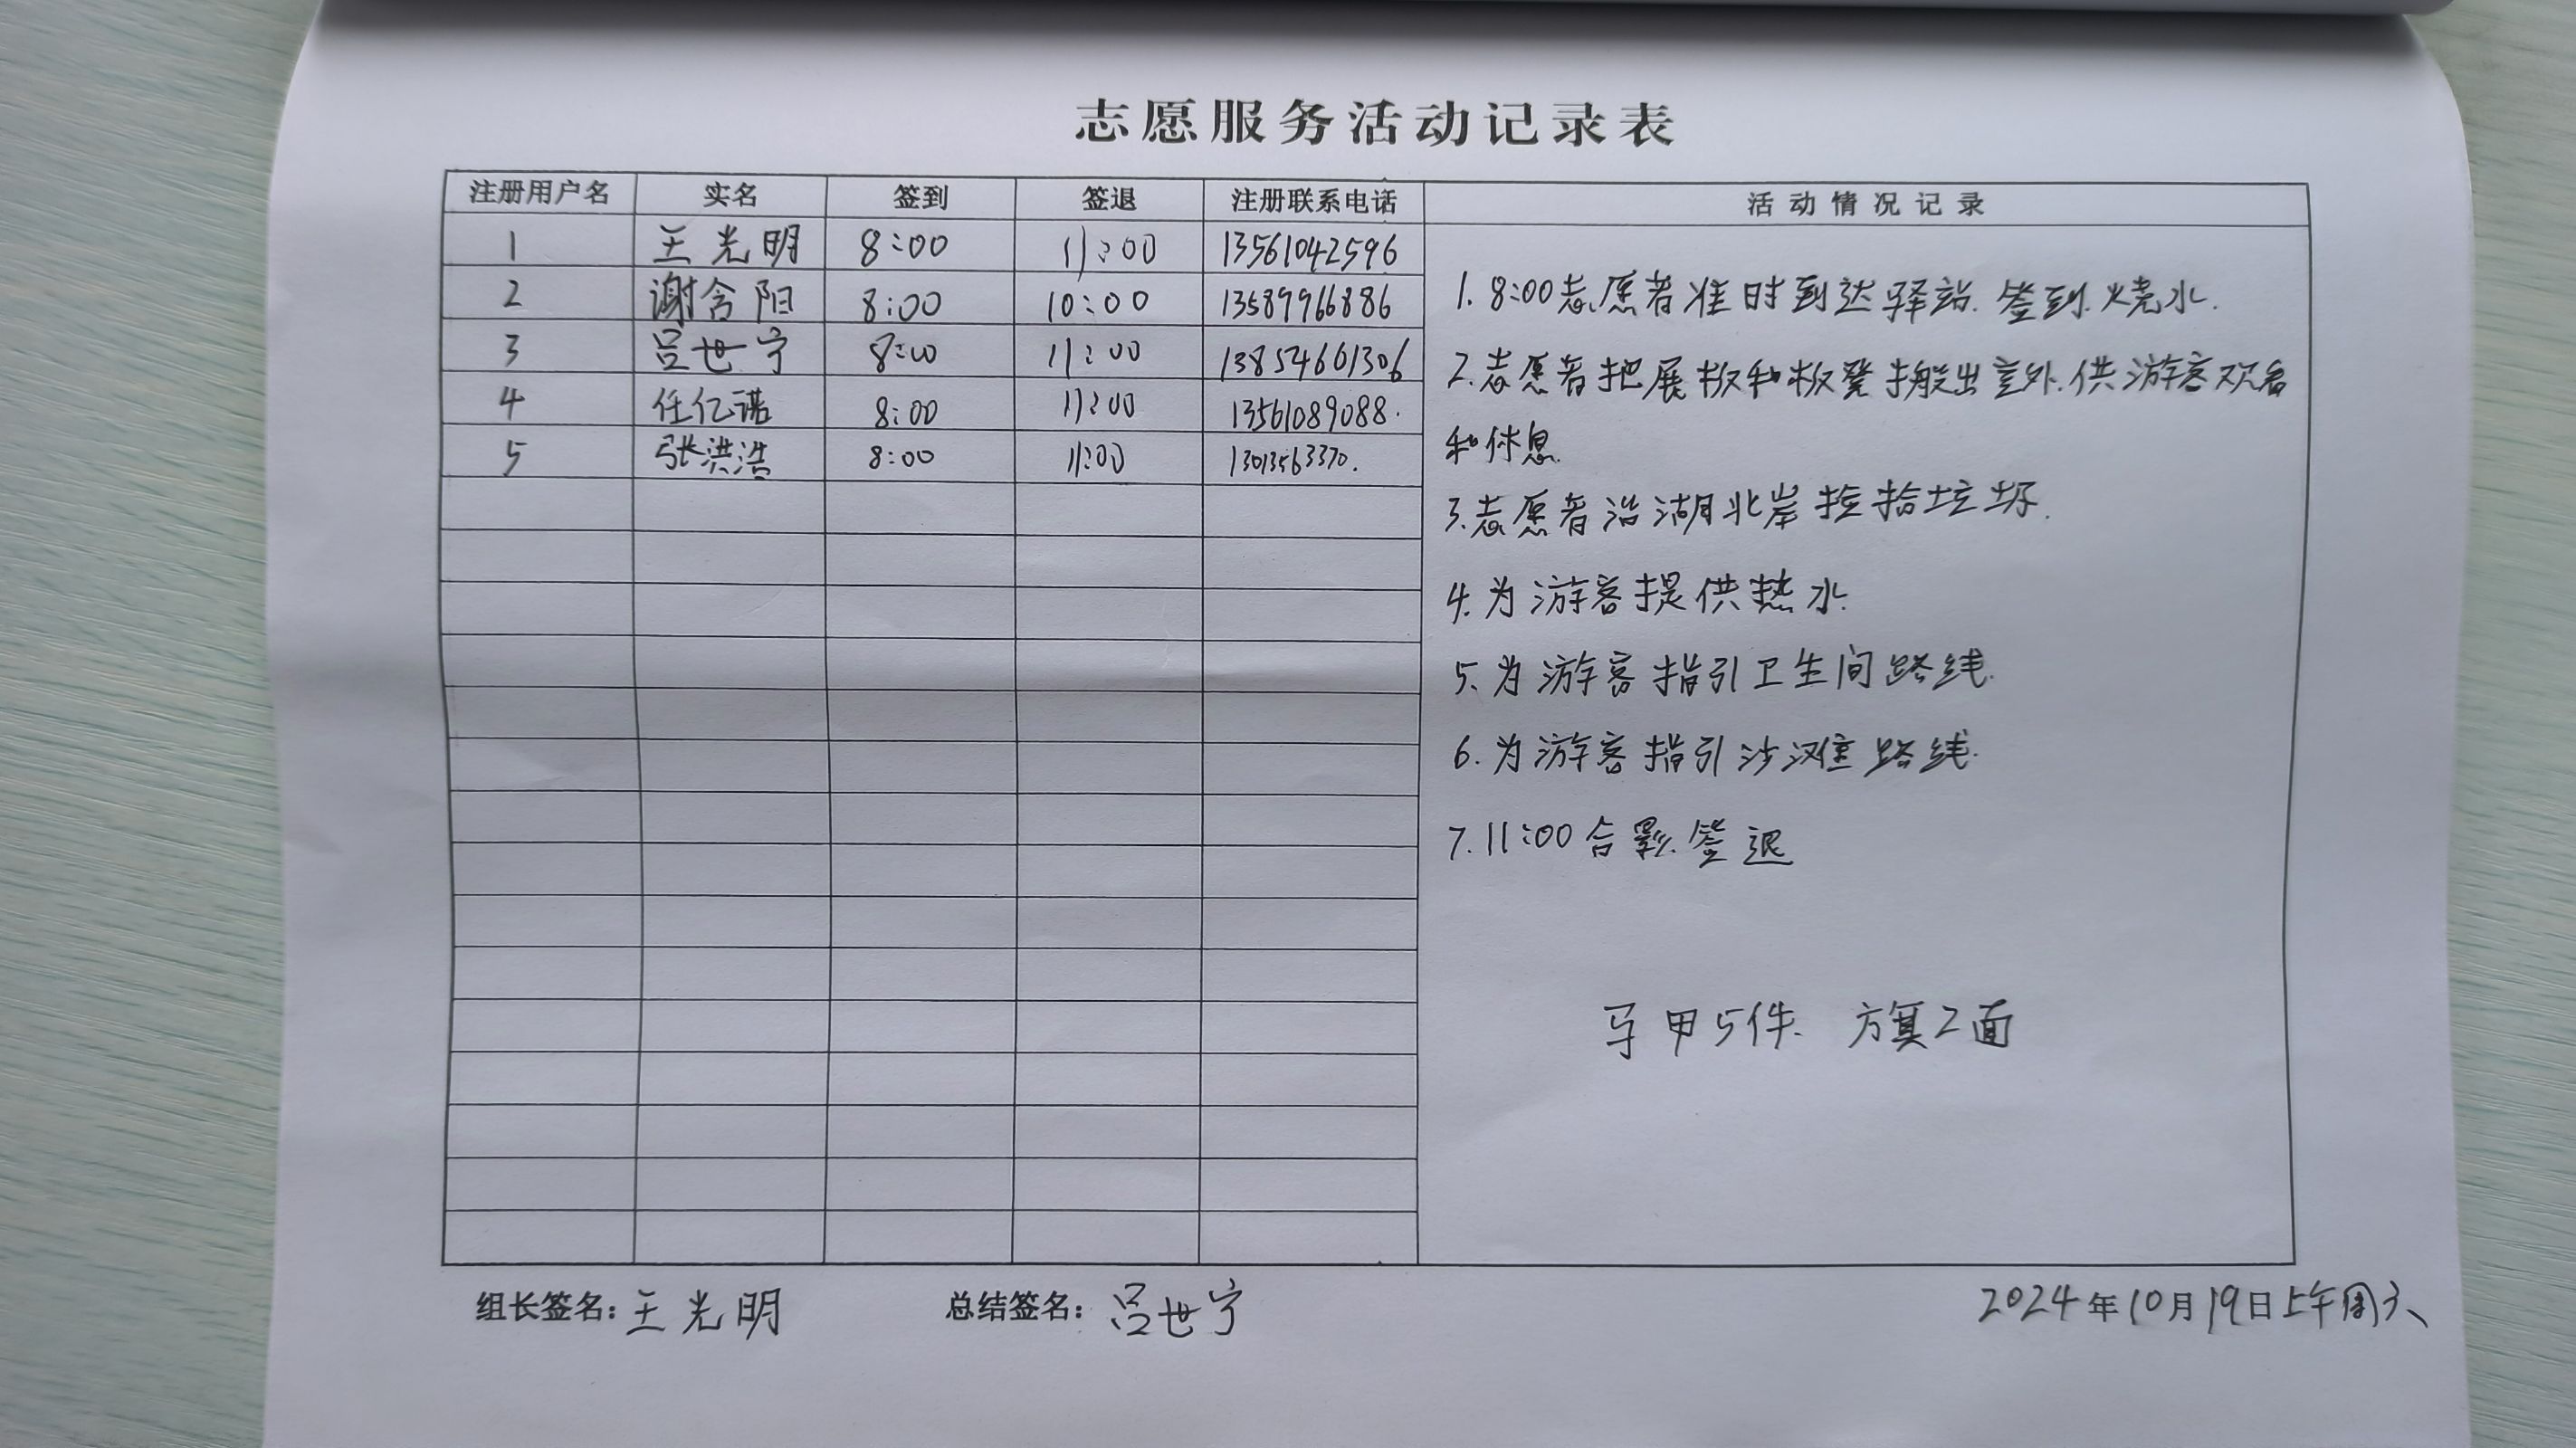 志愿服务活动记录表
注册用户名 实名 签到 签退 注册联系电话 活动情况记录
1 王光明 8:00 11:00 13561042596
2 谢含阳 8:00 10:00 13589966886
3 吕世宁 8:00 11:00 13854661306
4 任亿诺 8:00 11:00 13561089088.
5 张洪浩 8:00 11:00 13013563370.
1. 8:00志愿者准时到达驿站.签到.烧水.
2.志愿者把展板和板凳搬出室外.供游客观看
和休息.
3.志愿者沿湖北岸捡拾垃圾.
4.为游客提供热水.
5.为游客指引卫生间路线.
6.为游客指引沙滩路线.
7.11:00合影.签退
马甲5件. 方旗2面
组长签名：王光明 总结签名：吕世宁 2024年10月19日上午周六